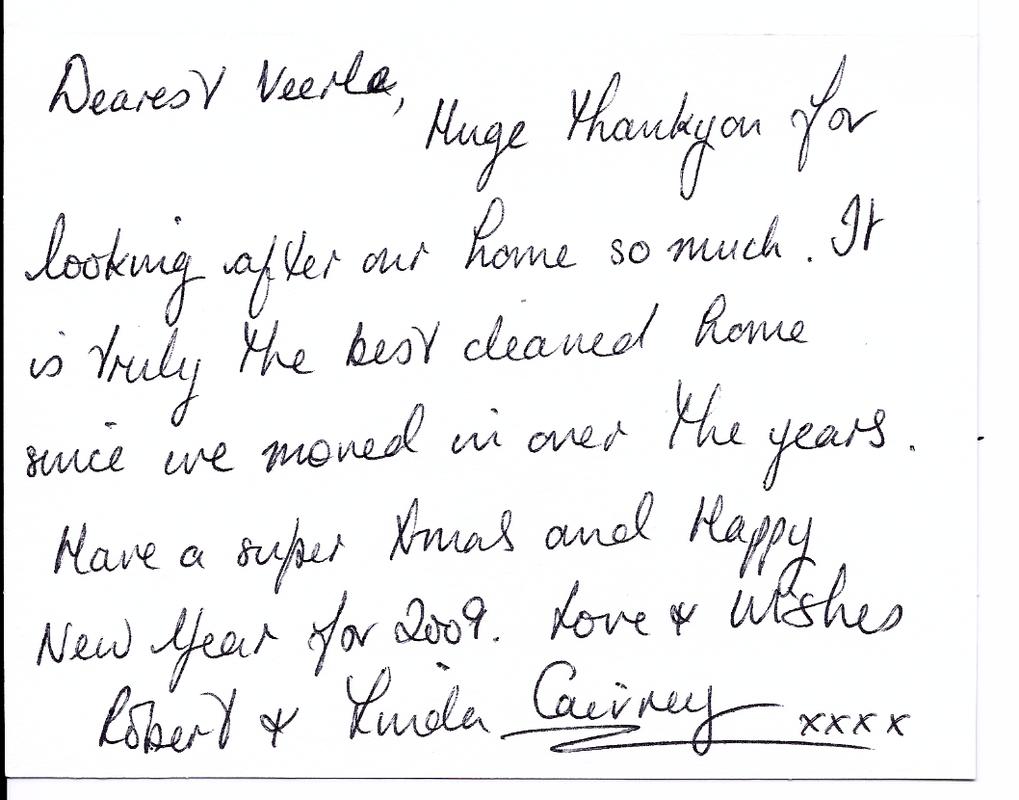 Dearest Veerle,
Huge thankyou for
looking after our home so much. It
is truly the best cleaned home
since we moved in over the years.
Have a super Xmas and Happy
New Year for 2009. Love & Wishes
Robert & Linda Cairney xxxx